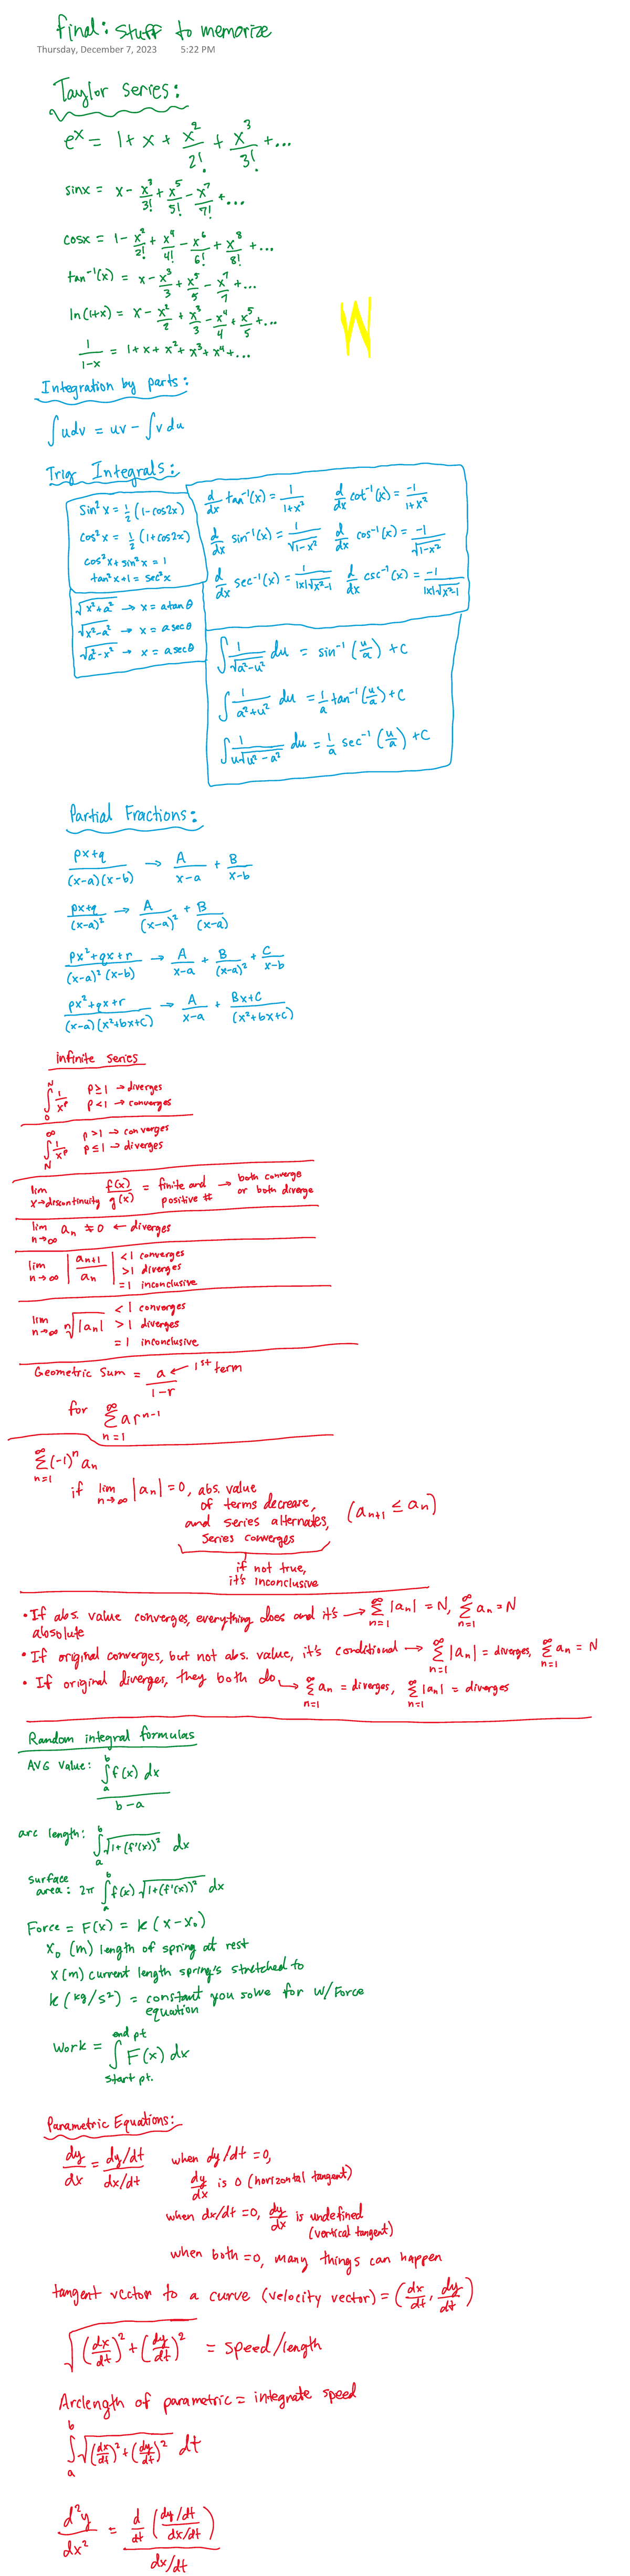 final: stuff to memorize
Thursday, December 7, 2023 5:22 PM
Taylor series:
e^x = 1 + x + x^2/2! + x^3/3! + ...
sinx = x - x^3/3! + x^5/5! - x^7/7! + ...
cosx = 1 - x^2/2! + x^4/4! - x^6/6! + x^8/8! + ...
tan^-1(x) = x - x^3/3 + x^5/5 - x^7/7 + ...
ln(1+x) = x - x^2/2 + x^3/3 - x^4/4 + x^5/5 + ...
W
1/(1-x) = 1 + x + x^2 + x^3 + x^4 + ...
Integration by parts:
∫udv = uv - ∫vdu
Trig Integrals:
sin^2 x = 1/2 (1-cos2x)
cos^2 x = 1/2 (1+cos2x)
cos^2 x + sin^2 x = 1
tan^2 x + 1 = sec^2 x
√(x^2+a^2) → x = atanθ
√(x^2-a^2) → x = asecθ
√(a^2-x^2) → x = asecθ
d/dx tan^-1(x) = 1/(1+x^2) d/dx cot^-1(x) = -1/(1+x^2)
d/dx sin^-1(x) = 1/√(1-x^2) d/dx cos^-1(x) = -1/√(1-x^2)
d/dx sec^-1(x) = 1/(|x|√(x^2-1)) d/dx csc^-1(x) = -1/(|x|√(x^2-1))
∫ 1/√(a^2-u^2) du = sin^-1 (u/a) + C
∫ 1/(a^2+u^2) du = 1/a tan^-1 (u/a) + C
∫ 1/(u√(u^2-a^2)) du = 1/a sec^-1 (u/a) + C
Partial Fractions:
(px+q)/((x-a)(x-b)) → A/(x-a) + B/(x-b)
(px+q)/(x-a)^2 → A/(x-a)^2 + B/(x-a)
(px^2+qx+r)/((x-a)^2 (x-b)) → A/(x-a) + B/(x-a)^2 + C/(x-b)
(px^2+qx+r)/((x-a)(x^2+bx+c)) → A/(x-a) + (Bx+C)/(x^2+bx+c)
infinite series
∫_0^N 1/x^p p≥1 → diverges
p<1 → converges
∫_N^∞ 1/x^p p>1 → converges
p≤1 → diverges
lim x→discontinuity f(x)/g(x) = finite and positive # → both converge or both diverge
lim n→∞ a_n ≠ 0 ← diverges
lim n→∞ |a_n+1/a_n| <1 converges
>1 diverges
=1 inconclusive
lim n→∞ n√|a_n| <1 converges
>1 diverges
=1 inconclusive
Geometric Sum = a/(1-r) ← 1st term
for ∑_{n=1}^∞ ar^{n-1}
∑_{n=1}^∞ (-1)^n a_n
if lim n→∞ |a_n| = 0, abs. value
of terms decrease, (a_n+1 ≤ a_n)
and series alternates,
series converges
if not true,
it's inconclusive
• If abs. value converges, everything does and it's → ∑_{n=1}^∞ |a_n| = N, ∑_{n=1}^∞ a_n = N
absolute
• If original converges, but not abs. value, it's conditional → ∑_{n=1}^∞ |a_n| = diverges, ∑_{n=1}^∞ a_n = N
• If original diverges, they both do → ∑_{n=1}^∞ a_n = diverges, ∑_{n=1}^∞ |a_n| = diverges
Random integral formulas
AVG value: ∫_a^b f(x) dx / (b-a)
arc length: ∫_a^b √(1+(f'(x))^2) dx
surface area: 2π ∫_a^b f(x) √(1+(f'(x))^2) dx
Force = F(x) = k(x-x_0)
x_0 (m) length of spring at rest
x(m) current length spring's stretched to
k (kg/s^2) = constant you solve for w/Force
equation
Work = ∫_{start pt.}^{end pt} F(x) dx
Parametric Equations:
dy/dx = (dy/dt)/(dx/dt) when dy/dt = 0,
dy/dx is 0 (horizontal tangent)
when dx/dt = 0, dy/dx is undefined
(vertical tangent)
when both = 0, many things can happen
tangent vector to a curve (velocity vector) = (dx/dt, dy/dt)
√((dx/dt)^2 + (dy/dt)^2) = speed/length
Arclength of parametric = integrate speed
∫_a^b √((dx/dt)^2 + (dy/dt)^2) dt
d^2y/dx^2 = d/dt ((dy/dt)/(dx/dt)) / (dx/dt)